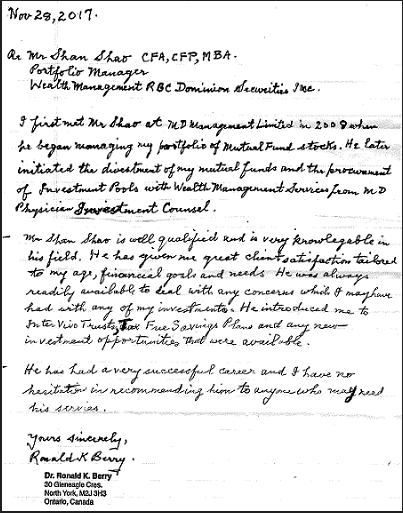 Nov 28, 2017.
Re Mr Shan Shao CFA, CFP, MBA.
Portfolio Manager
Wealth Management RBC Dominion Securities Inc.
I first met Mr Shao at MD Management Limited in 2008 when
he began managing my portfolio of Mutual Fund stocks. He later
initiated the divestment of my mutual funds and the procurement
of Investment Pools with Wealth Management Services from MD
Physician Investment Counsel.
Mr Shan Shao is well qualified and is very knowlegable in
his field. He has given me great client satisfaction tailored
to my age, financial goals and needs. He was always
readily available to deal with any concerns which I may have
had with any of my investments. He introduced me to
Inter Vivo Trusts, Tax Free Savings Plans and any new
investment opportunities that were available.
He has had a very successful career and I have no
hesitation in recommending him to anyone who may need
his servies.
Yours sincerely,
Ronald K Berry
Dr. Ronald K. Berry
30 Gleneagle Cres.
North York, M2J 3H3
Ontario, Canada